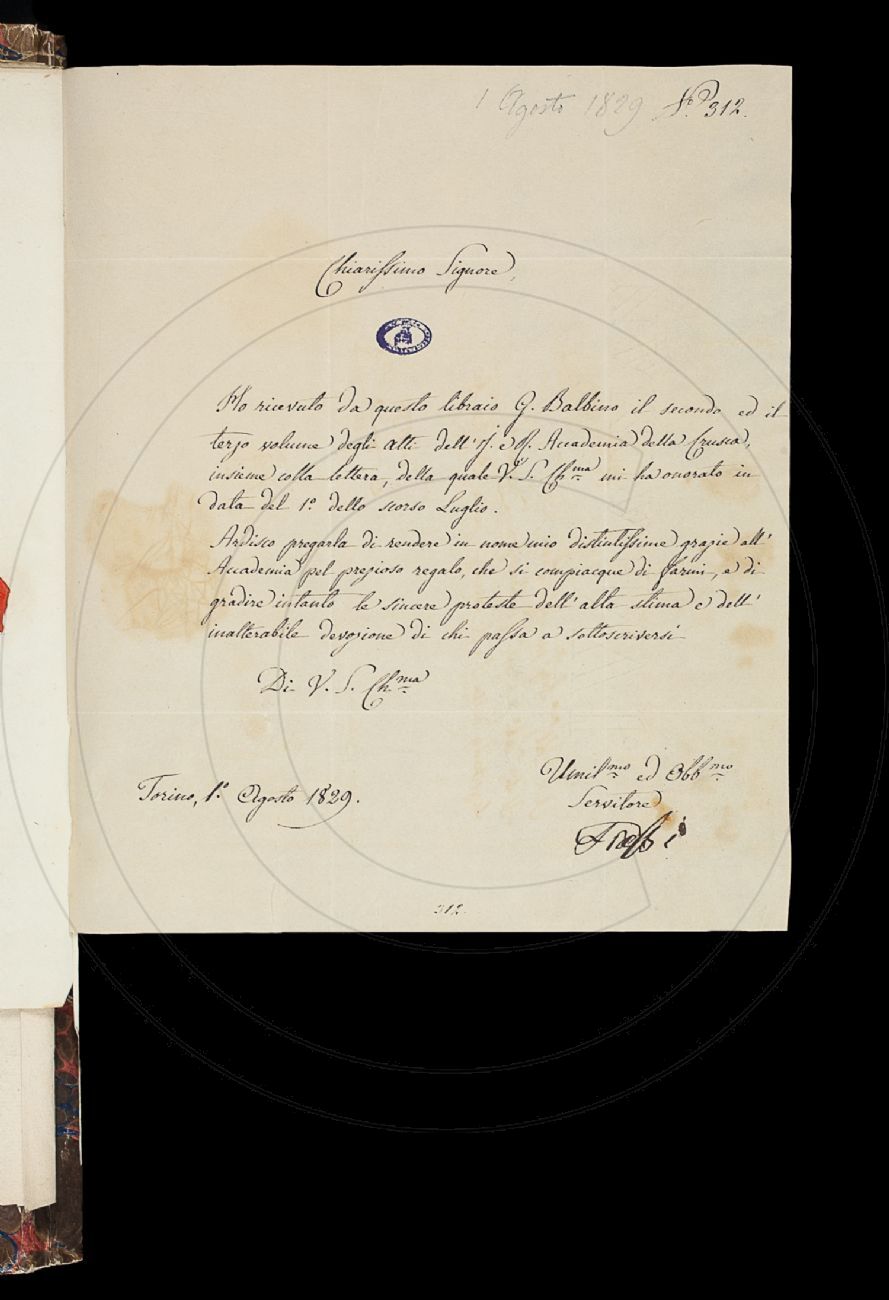 1 Agosto 1829 N.o 312.
Chiarissimo Signore,
Ho ricevuto da questo libraio G. Balbino il secondo ed il
terzo volume degli atti dell'I. e R. Accademia della Crusca,
insieme colla lettera, della quale V. S. Ch.ma mi ha onorato in
data del 1.o dello scorso Luglio.
Ardisco pregarla di rendere in nome mio distintissime grazie all'
Accademia pel prezioso regalo, che si compiacque di farmi, e di
gradire intanto le sincere proteste dell'alta stima e dell'
inalterabile devozione di chi passa a sottoscriversi
Di V. S. Ch.ma
Umil.mo ed Obb.mo
Torino, 1.o Agosto 1829.
Servitore
312.